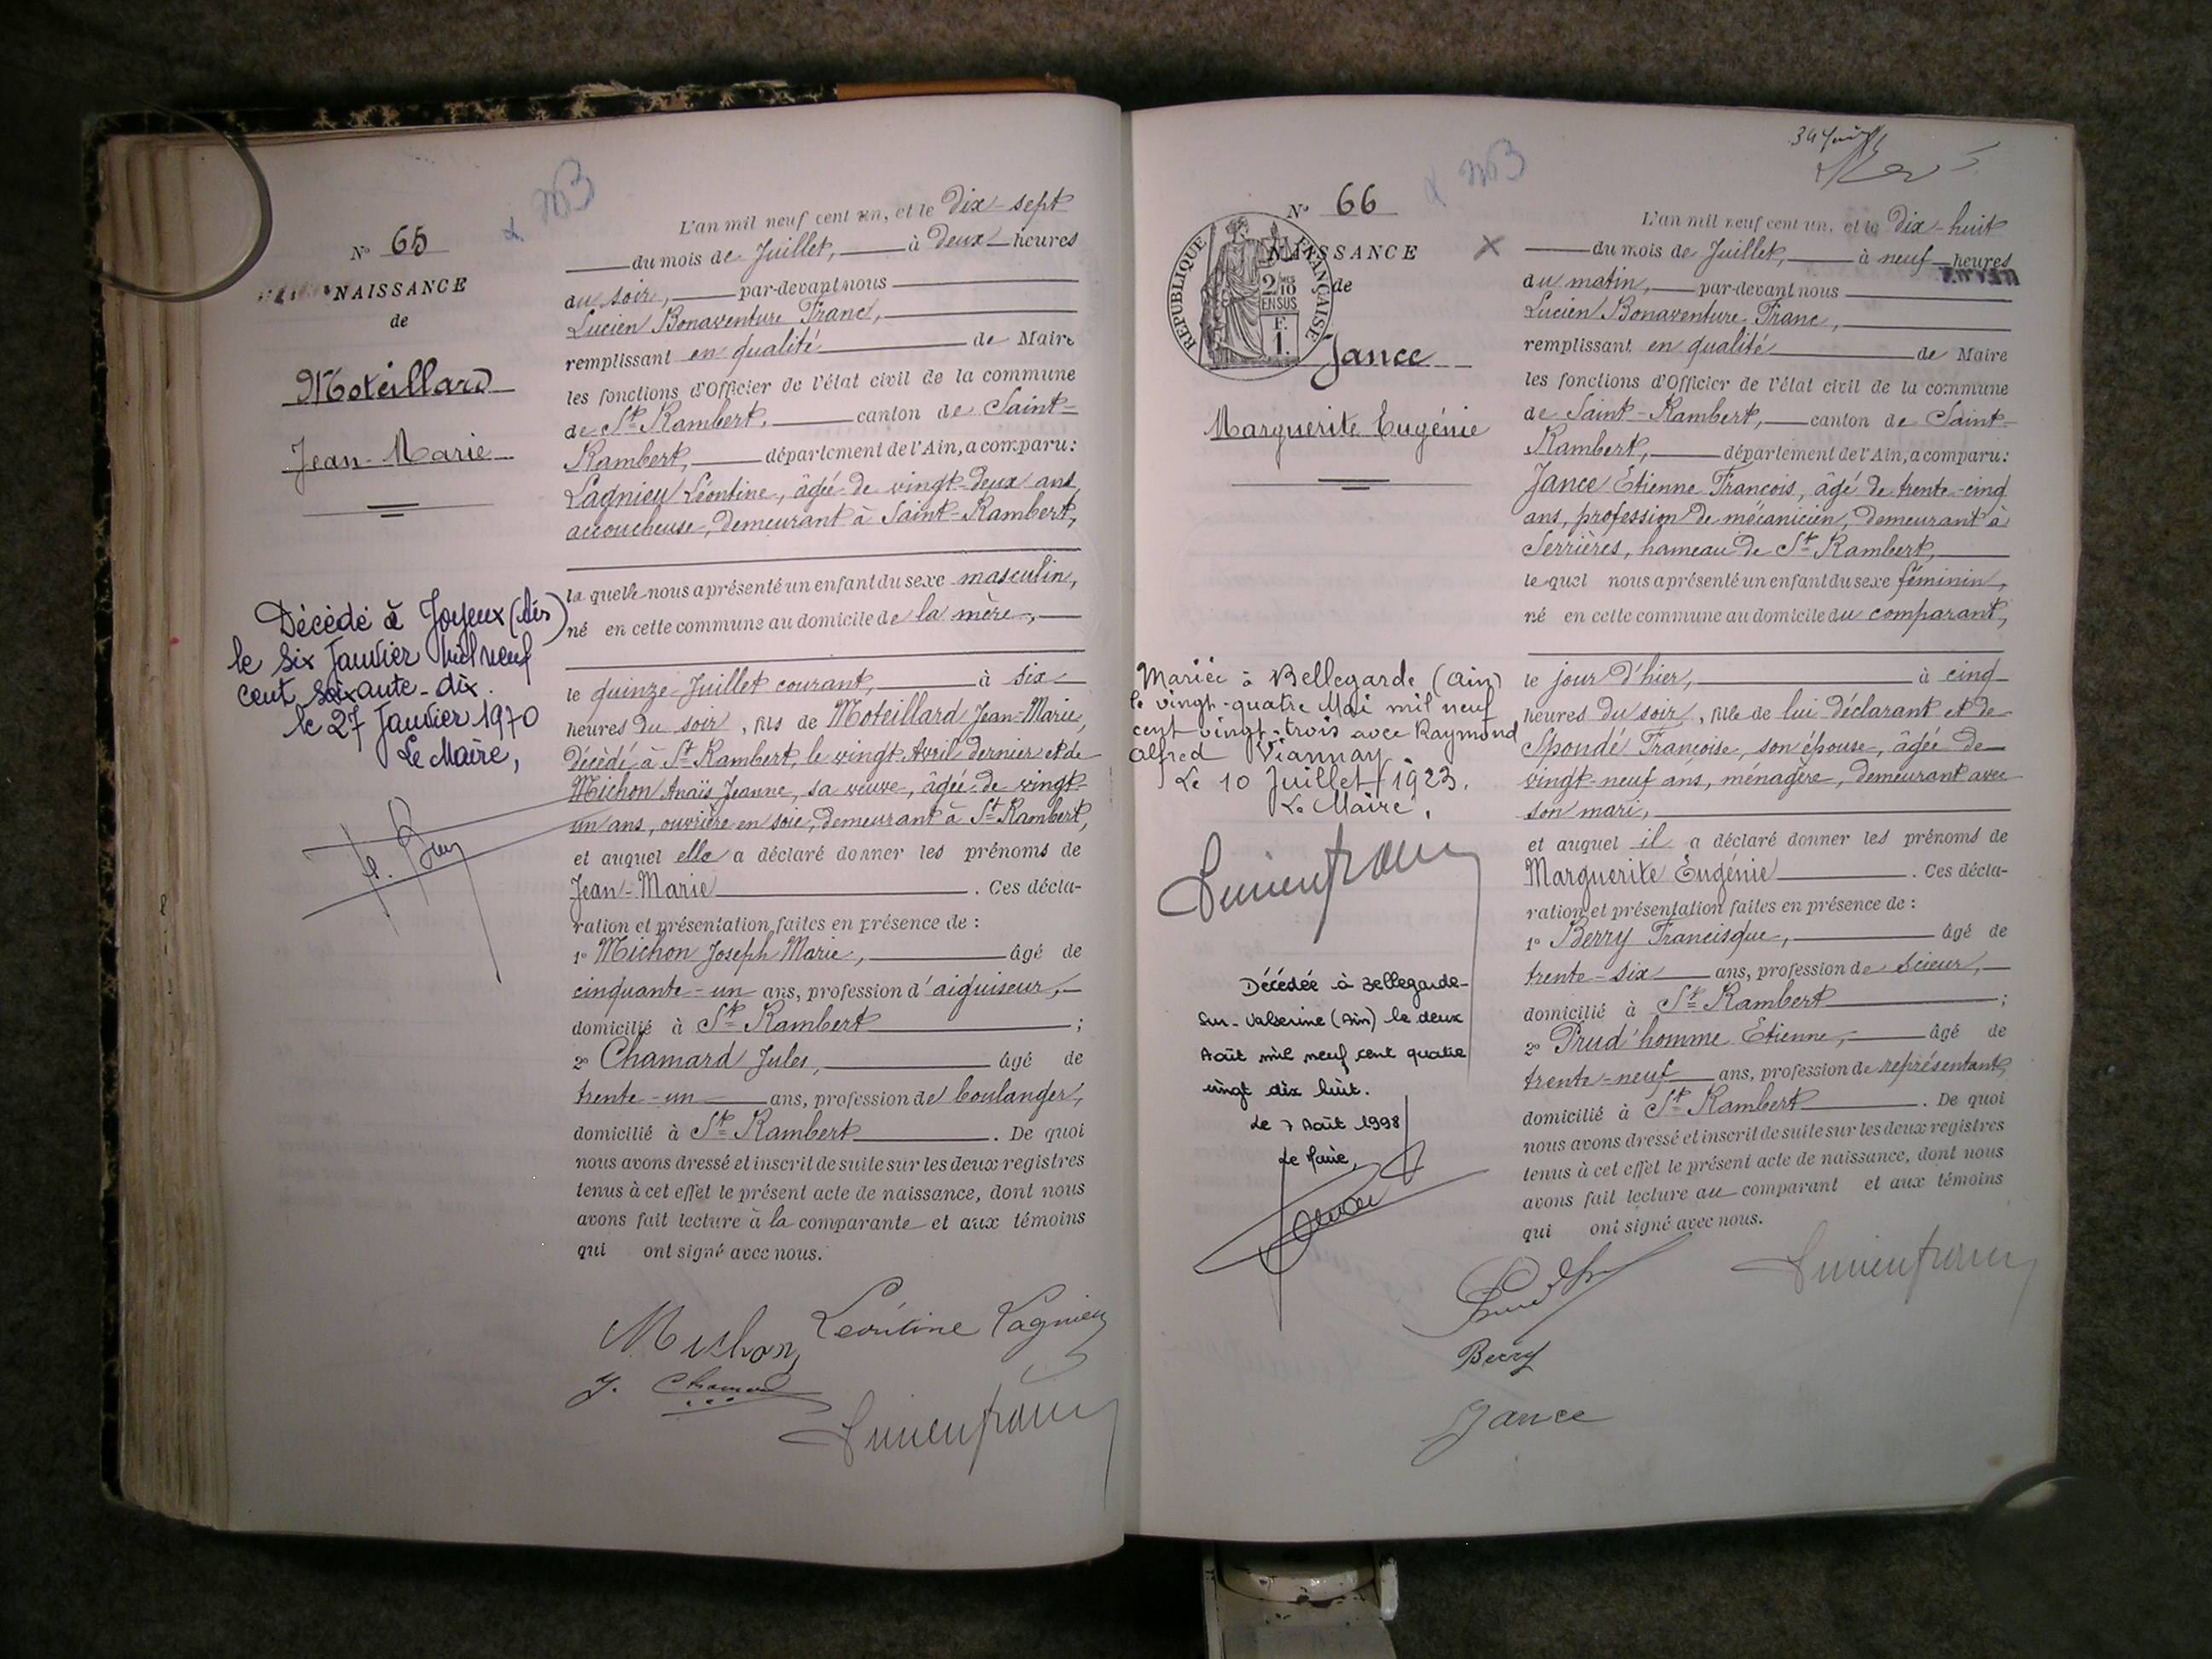 N° 65
NAISSANCE
de
Moteillard
Jean-Marie
Décédé à Joyeux (Ain)
le six Janvier mil neuf
cent soixante-dix.
le 27 Janvier 1970
Le Maire,
L'an mil neuf cent un, et le Dix-sept
du mois de Juillet, à Deux heures
du soir, par-devant nous
Lucien Bonaventure Franc,
remplissant en qualité de Maire
les fonctions d'Officier de l'état civil de la commune
de St Rambert, canton de Saint-
Rambert, département de l'Ain, a comparu:
Lagnieu Léontine, âgée de vingt-deux ans,
accoucheuse, demeurant à Saint-Rambert,
la quelle nous a présenté un enfant du sexe masculin,
né en cette commune au domicile de la mère,
le quinze Juillet courant, à six
heures du soir, fils de Moteillard Jean-Marie,
Décédé à St Rambert, le vingt Avril dernier et de
Michon Anaïs Jeanne, sa veuve, âgée de vingt-
un ans, ouvrière en soie, demeurant à St Rambert,
et auquel elle a déclaré donner les prénoms de
Jean-Marie. Ces décla-
ration et présentation faites en présence de :
1° Michon Joseph Marie, âgé de
cinquante-un ans, profession d'aiguiseur,
domicilié à St Rambert ;
2° Chamard Jules, âgé de
trente-un ans, profession de boulanger,
domicilié à St Rambert. De quoi
nous avons dressé et inscrit de suite sur les deux registres
tenus à cet effet le présent acte de naissance, dont nous
avons fait lecture à la comparante et aux témoins
qui ont signé avec nous.
Michon
Léontine Lagnieu
J. Chamard
Lucien franc
N° 66
NAISSANCE
de
RÉPUBLIQUE FRANÇAISE
2/10
EN SUS
F.
1.
Jance
Marguerite Eugénie
Mariée à Bellegarde (Ain)
le vingt-quatre Mai mil neuf
cent vingt-trois avec Raymond
Alfred Viannay.
Le 10 Juillet 1923.
Le Maire,
Lucien franc
Décédée à Bellegarde-
sur-Valserine (Ain) le deux
Août mil neuf cent quatre
vingt dix huit.
Le 7 Août 1998
Le Maire,
L'an mil neuf cent un, et le Dix-huit
du mois de Juillet, à neuf heures
du matin, par-devant nous
Lucien Bonaventure Franc,
remplissant en qualité de Maire
les fonctions d'Officier de l'état civil de la commune
de Saint-Rambert, canton de Saint-
Rambert, département de l'Ain, a comparu:
Jance Etienne François, âgé de trente-cinq
ans, profession de mécanicien, demeurant à
Serrières, hameau de St Rambert,
le quel nous a présenté un enfant du sexe féminin,
né en cette commune au domicile du comparant,
le jour d'hier, à cinq
heures du soir, fille de lui déclarant et de
Spondé Françoise, son épouse, âgée de
vingt-neuf ans, ménagère, demeurant avec
son mari,
et auquel il a déclaré donner les prénoms de
Marguerite Eugénie. Ces décla-
ration et présentation faites en présence de :
1° Berry Francisque, âgé de
trente-six ans, profession de scieur,
domicilié à St Rambert ;
2° Prud'homme Etienne, âgé de
trente-neuf ans, profession de représentant,
domicilié à St Rambert. De quoi
nous avons dressé et inscrit de suite sur les deux registres
tenus à cet effet le présent acte de naissance, dont nous
avons fait lecture au comparant et aux témoins
qui ont signé avec nous.
Lucien franc
Berry
Jance